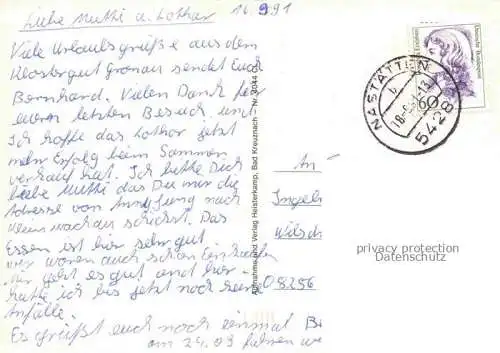 Liebe Mutti u. Lothar 16 9.91
Viele Urlaubsgrüße aus dem
Klostergut Gronau sendet Euch
Bernhard. Vielen Dank für
euren letzten Besuch und
Ich hoffe das Lothar jetzt
mehr Erfolg beim Sammen
verkauf hat. Ich bitte Dich
liebe Mutti das Du mir die
Adresse von Jung nach
Klein schickst. Das
Essen ist hir sehr gut
wir waren auch schon Einkaufen
Mir geht es gut und hir
hatte ich bis jetzt noch keine
Anfälle.
Es grüßt euch noch einmal B
am 24.09 fahren w
Aufnahme und Verlag Heisterkamp, Bad Kreuznach – Nr. 2044
An
Ingel
Wilsd
08256
Deutsche Bundespost
60
NASTÄTTEN
5428
privacy protection
Datenschutz